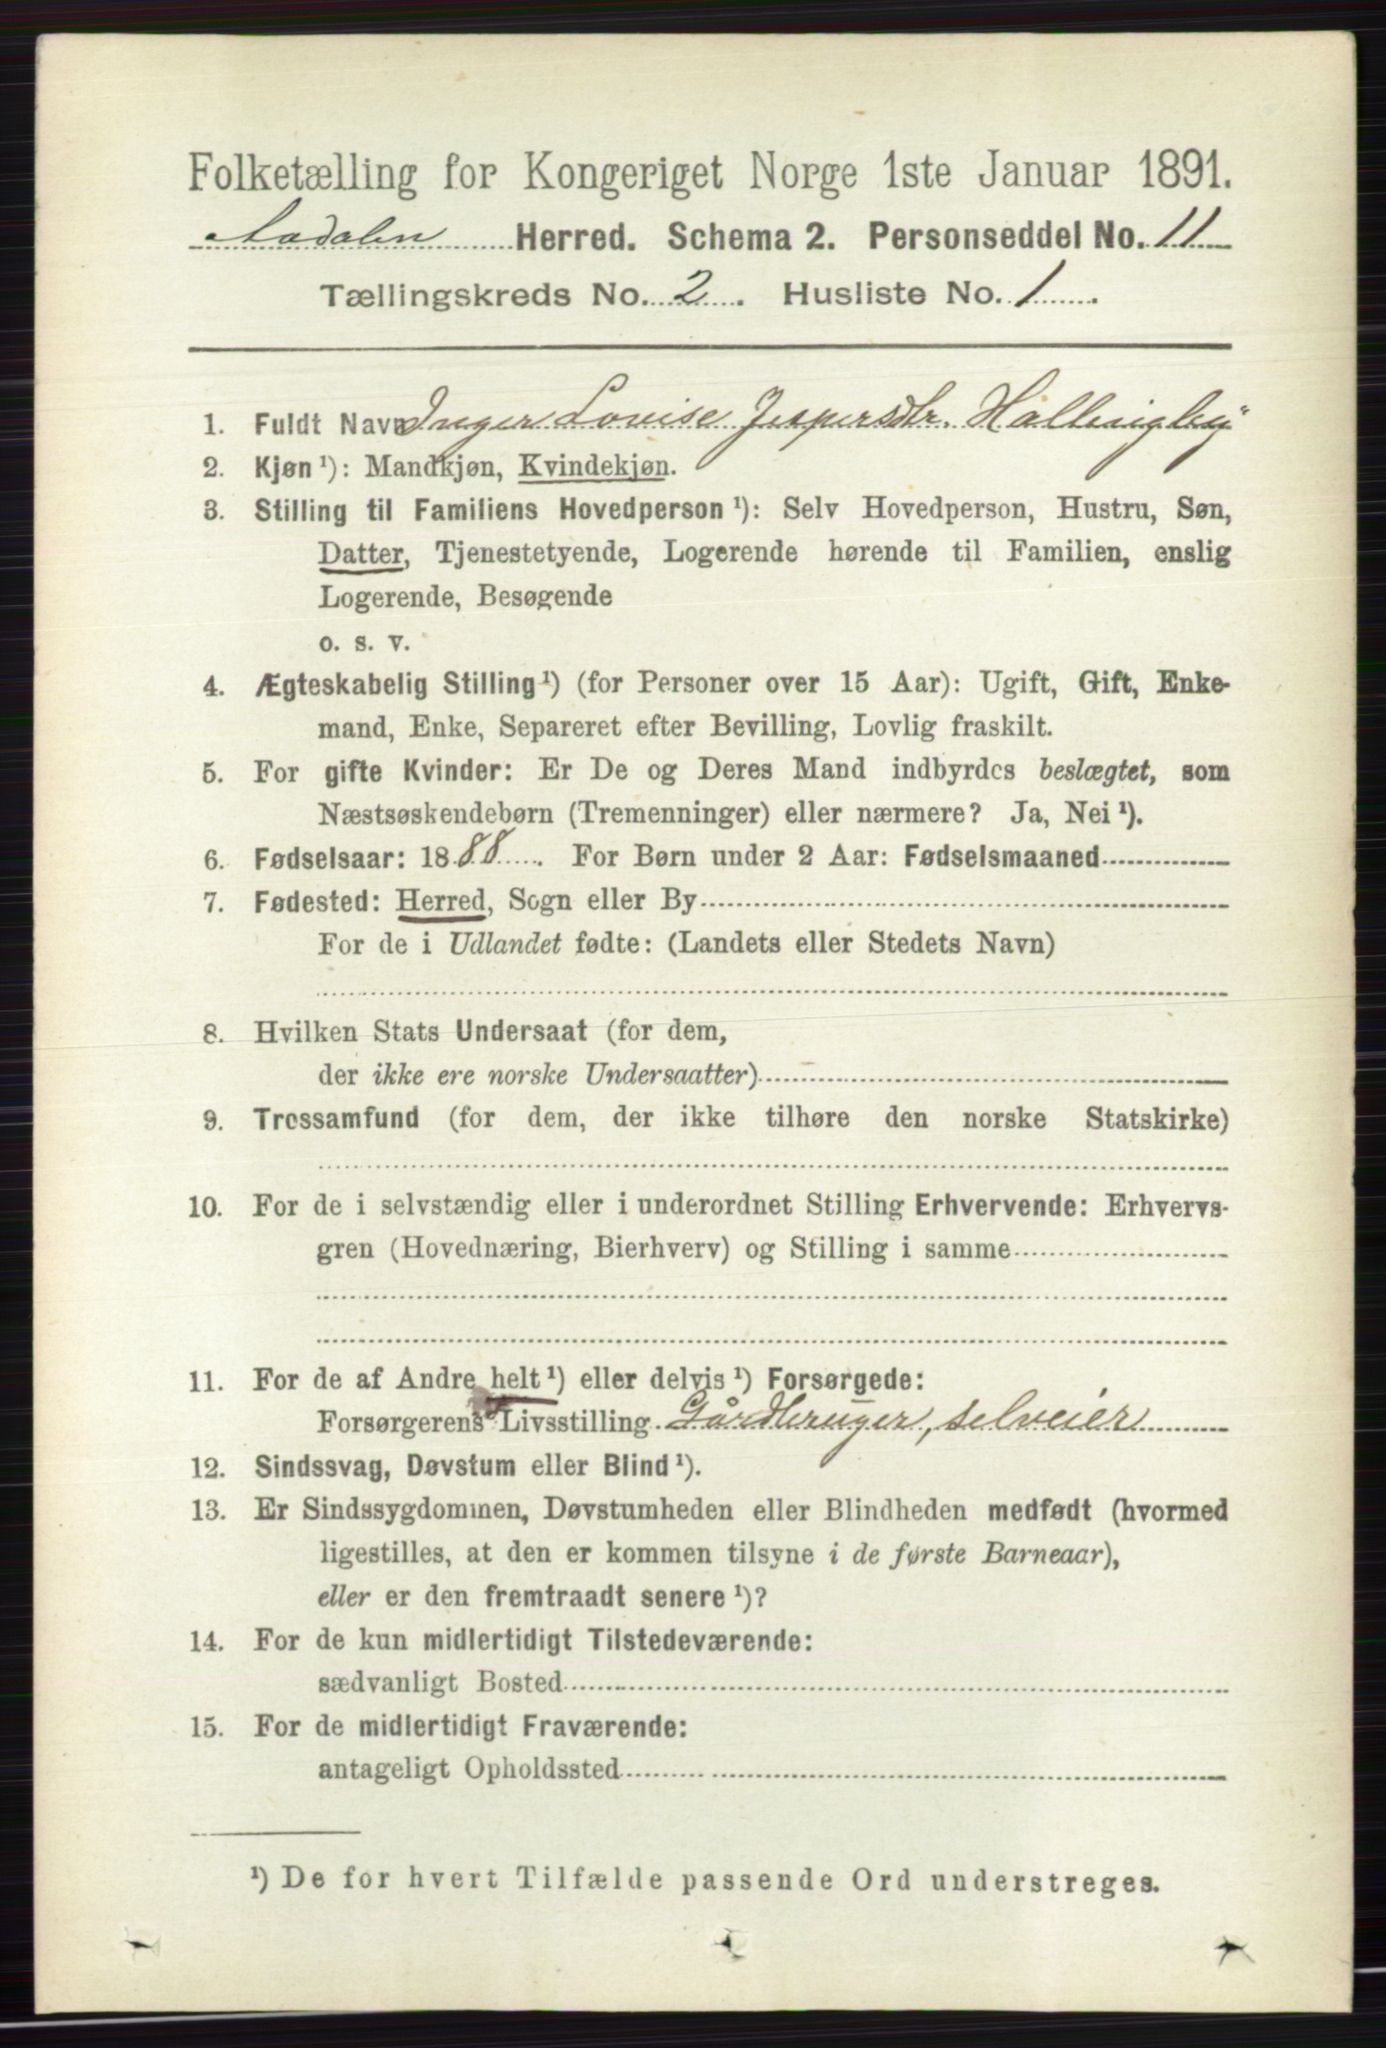 Folketælling for Kongeriget Norge 1ste Januar 1891.
Aadalen Herred. Schema 2. Personseddel No. 11
Tællingskreds No. 2. Husliste No. 1.
1. Fuldt Navn Inger Lovise Jespersdtr. Hallingby
2. Kjøn¹): Mandkjøn, Kvindekjøn.
3. Stilling til Familiens Hovedperson¹): Selv Hovedperson, Hustru, Søn,
Datter, Tjenestetyende, Logerende hørende til Familien, enslig
Logerende, Besøgende
o. s. v.
4. Ægteskabelig Stilling¹) (for Personer over 15 Aar): Ugift, Gift, Enke-
mand, Enke, Separeret efter Bevilling, Lovlig fraskilt.
5. For gifte Kvinder: Er De og Deres Mand indbyrdes beslægtet, som
Næstsøskendebørn (Tremenninger) eller nærmere? Ja, Nei¹).
6. Fødselsaar: 1888. For Børn under 2 Aar: Fødselsmaaned
7. Fødested: Herred, Sogn eller By
For de i Udlandet fødte: (Landets eller Stedets Navn)
8. Hvilken Stats Undersaat (for dem,
der ikke ere norske Undersaatter)
9. Trossamfund (for dem, der ikke tilhøre den norske Statskirke)
10. For de i selvstændig eller i underordnet Stilling Erhvervende: Erhvervs-
gren (Hovednæring, Bierhverv) og Stilling i samme
11. For de af Andre helt¹) eller delvis¹) Forsørgede:
Forsørgerens Livsstilling Gårdbruger, selveier
12. Sindssvag, Døvstum eller Blind¹).
13. Er Sindssygdommen, Døvstumheden eller Blindheden medfødt (hvormed
ligestilles, at den er kommen tilsyne i de første Barneaar),
eller er den fremtraadt senere¹)?
14. For de kun midlertidigt Tilstedeværende:
sædvanligt Bosted
15. For de midlertidigt Fraværende:
antageligt Opholdssted
¹) De for hvert Tilfælde passende Ord understreges.